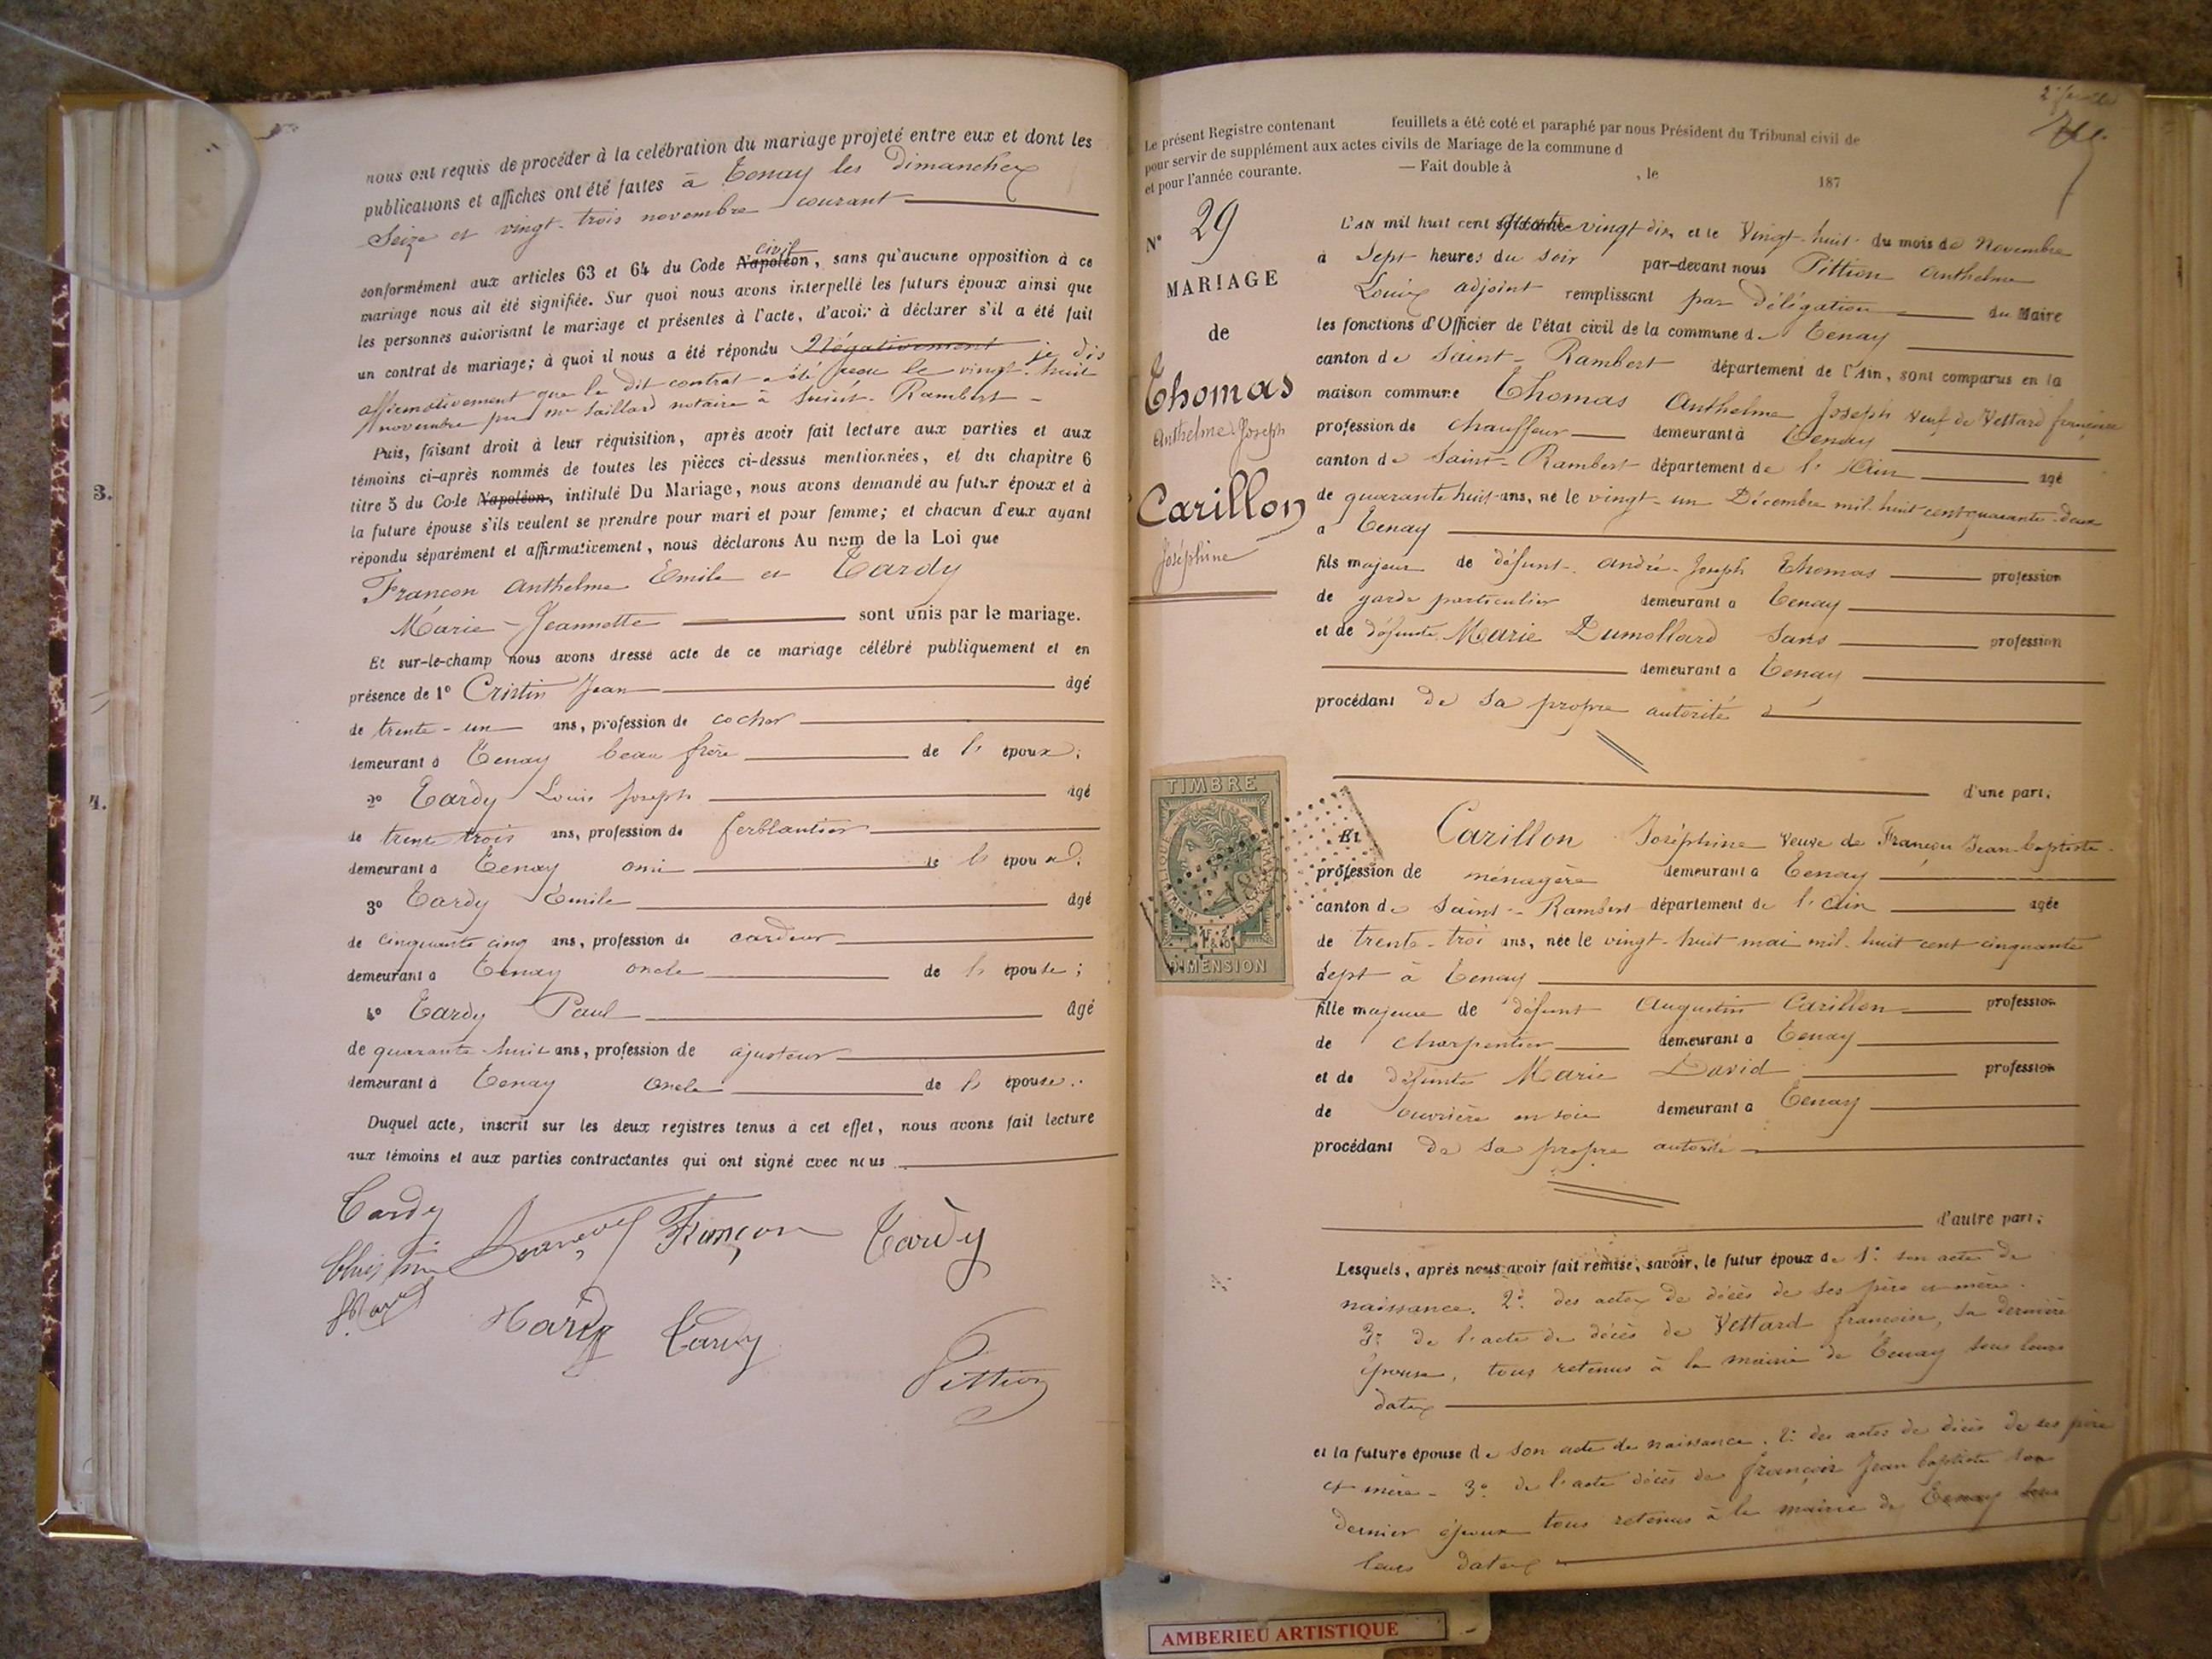 nous ont requis de procéder à la celébration du mariage projeté entre eux et dont les
publications et affiches ont été faites à Tenay les dimanches
seize et vingt-trois novembre courant
civil
conformément aux articles 63 et 64 du Code Napoléon, sans qu'aucune opposition à ce
mariage nous ait été signifiée. Sur quoi nous avons interpellé les futurs époux ainsi que
les personnes autorisant le mariage et présentes à l'acte, d'avoir à déclarer s'il a été fait
un contrat de mariage; à quoi il nous a été répondu Négativement je dis
affirmativement que le dit contrat a été reçu le vingt-huit
novembre par me Saillard notaire à Saint-Rambert
Puis, faisant droit à leur réquisition, après avoir fait lecture aux parties et aux
témoins ci-après nommés de toutes les pièces ci-dessus mentionnées, et du chapitre 6
titre 5 du Code Napoléon, intitulé Du Mariage, nous avons demandé au futur époux et à
la future épouse s'ils veulent se prendre pour mari et pour femme; et chacun d'eux ayant
répondu séparément et affirmativement, nous déclarons Au nom de la Loi que
Françon Anthelme Emile et Tardy
Marie-Jeannette sont unis par le mariage.
Et sur-le-champ nous avons dressé acte de ce mariage célébré publiquement et en
présence de 1° Cristin Jean âgé
de trente-un ans, profession de cocher
demeurant à Tenay beau frère de l' époux;
2° Tardy Louis Joseph âgé
de trente trois ans, profession de ferblantier
demeurant à Tenay ami de l' époux;
3° Tardy Emile âgé
de cinquante cinq ans, profession de cardeur
demeurant à Tenay oncle de l' épouse;
4° Tardy Paul âgé
de quarante-huit ans, profession de ajusteur
demeurant à Tenay oncle de l' épouse.
Duquel acte, inscrit sur les deux registres tenus à cet effet, nous avons fait lecture
aux témoins et aux parties contractantes qui ont signé avec nous
Tardy
Françon Tardy
Tardy
Pittion
3.
4.
Le présent Registre contenant feuillets a été coté et paraphé par nous Président du Tribunal civil de
pour servir de supplément aux actes civils de Mariage de la commune d
et pour l'année courante. — Fait double à , le 187
N° 29
MARIAGE
de
Thomas
Anthelme Joseph
Carillon
Joséphine
L'AN mil huit cent soixante vingt dix et le Vingt-huit du mois de Novembre
à Sept heures du soir par-devant nous Pittion Anthelme
Louis adjoint remplissant par délégation du Maire
les fonctions d'Officier de l'état civil de la commune de Tenay
canton de Saint-Rambert département de l'Ain, sont comparus en la
maison commune Thomas Anthelme Joseph veuf de Vettard françoise
profession de chauffeur demeurant à Tenay
canton de Saint-Rambert département de l'Ain âgé
de quarante huit ans, né le vingt-un Décembre mil-huit cent quarante-deux
a Tenay
fils majeur de défunt André-Joseph Thomas profession
de garde particulier demeurant a Tenay
et de défunte Marie Dumollard sans profession
demeurant a Tenay
procédant de sa propre autorité
d'une part;
Et Carillon Joséphine veuve de François Jean-baptiste
profession de ménagère demeurant a Tenay
canton de Saint-Rambert département de l'Ain agée
de trente-troi ans, née le vingt-huit mai mil-huit cent cinquante
sept à Tenay
fille majeure de défunt Augustin Carillon profession
de charpentier demeurant a Tenay
et de défunte Marie David profession
de ouvrière en soie demeurant a Tenay
procédant de sa propre autorité
d'autre part;
Lesquels, après nous avoir fait remise, savoir, le futur époux de 1° son acte de
naissance. 2° des actes de décès de ses père et mère.
3° de l'acte de décès de Vettard françoise, sa dernière
épouse, tous retenus à la mairie de Tenay sous leurs
dates
et la future épouse de son acte de naissance. 2° des actes de décès de ses père
et mère - 3° de l'acte décès de françois Jean baptiste son
dernier époux tous retenus à la mairie de Tenay sous
leurs dates
TIMBRE
DIMENSION
AMBERIEU ARTISTIQUE